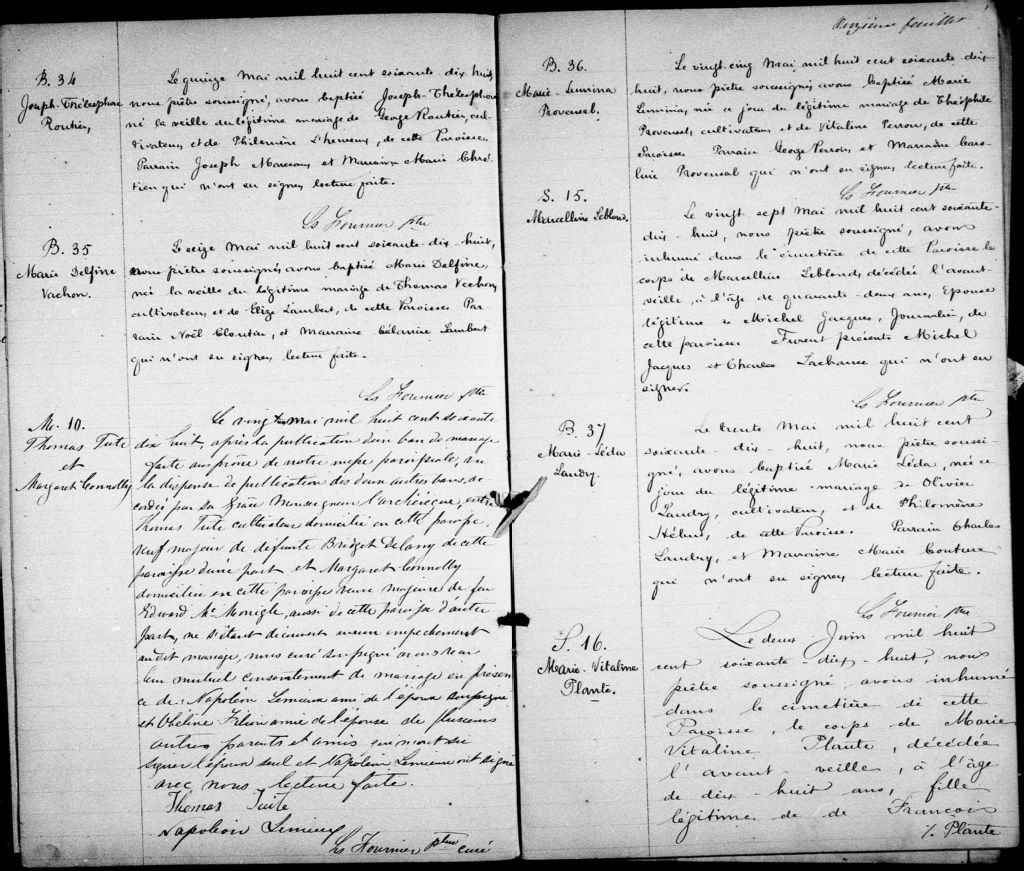 B. 34
Joseph-Thélesphore
Routier,
Le quinze Mai mil huit cent soixante-dix-huit,
nous prêtre soussigné, avons baptisé Joseph-Thélesphore
né la veille du légitime mariage de George Routier, cul-
tivateur, et de Philomène L'heureux, de cette Paroisse.
Parrain Joseph Marceau, et Marraine Marie Chré-
tien qui n'ont su signer, lecture faite.
Ls Fournier ptre
B. 35
Marie Delfine
Vachon.
Le seize Mai mil huit cent soixante-dix-huit,
nous prêtre soussigné, avons baptisé Marie Delfine,
née la veille du légitime mariage de Thomas Vachon,
cultivateur, et de Elize Lambert, de cette Paroisse. Par-
rain Noël Cloutier, et Marraine Célanire Lambert
qui n'ont su signer, lecture faite.
Ls Fournier ptre
M. 10.
Thomas Tute
et
Margaret Connolly
Le vingt Mai mil huit cent soixante
dix huit, après la publication d'un ban de mariage
faite au prône de notre messe paroissiale, vu
la dispense de publication des deux autres bans, ac-
cordée par sa Grâce Monseigneur l'archevêque, entre
Thomas Tute cultivateur domicilié en cette paroisse,
veuf majeur de défunte Bridget Delany de cette
paroisse d'une part et Margaret Connolly
domiciliée en cette paroisse veuve majeure de feu
Edward Mc Monigle, aussi de cette paroisse d'autre
part, ne s'étant découvert aucun empêchement
au dit mariage, nous curé soussigné avons reçu
leur mutuel consentement de mariage en présen
ce de: Napoléon Lemieux ami de l'époux soussigné
et Obéline Filion amie de l'épouse de plusieurs
autres parents et amis qui n'ont su
signer l'époux seul et Napoléon Lemieux ont signé
avec nous lecture faite.
Thomas Tuite
Napoléon Lemieux
Ls Fournier ptre curé
Onzième feuillet
B. 36.
Marie-Lumina
Provensal.
Le vingt-cinq Mai mil huit cent soixante-dix-
huit, nous prêtre soussigné, avons baptisé Marie
Lumina, née ce jour du légitime mariage de Théophile
Provensal, cultivateur, et de Vitaline Perron, de cette
Paroisse. Parrain George Perron, et Marraine Caro-
line Provensal qui n'ont su signer, lecture faite.
Ls Fournier ptre
S. 15.
Marcelline Leblond.
Le vingt-sept Mai mil huit cent soixante-
dix-huit, nous prêtre soussigné, avons
inhumé dans le cimetière de cette Paroisse le
corps de Marcelline Leblond, décédée l'avant-
veille, à l'âge de quarante-deux ans, Epouse
légitime de Michel Jacques, Journalier, de
cette paroisse. Furent présents Michel
Jacques et Charles Lachance qui n'ont su
signer.
Ls Fournier ptre
B. 37
Marie-Léda
Landry.
Le trente Mai mil huit cent
soixante-dix-huit, nous prêtre soussi-
gné, avons baptisé Marie Léda, née ce
jour du légitime mariage de Olivier
Landry, cultivateur, et de Philomène
Hébert, de cette Paroisse. Parrain Charles
Landry, et Marraine Marie Couture
qui n'ont su signer, lecture faite.
Ls Fournier ptre
S. 16.
Marie-Vitaline
Plante.
Le deux Juin mil huit
cent soixante-dix-huit, nous
prêtre soussigné avons inhumé
dans le cimetière de cette
Paroisse, le corps de Marie
Vitaline Plante, décédée
l'avant-veille, à l'âge
de dix-huit ans, fille
légitime de de François
/. Plante